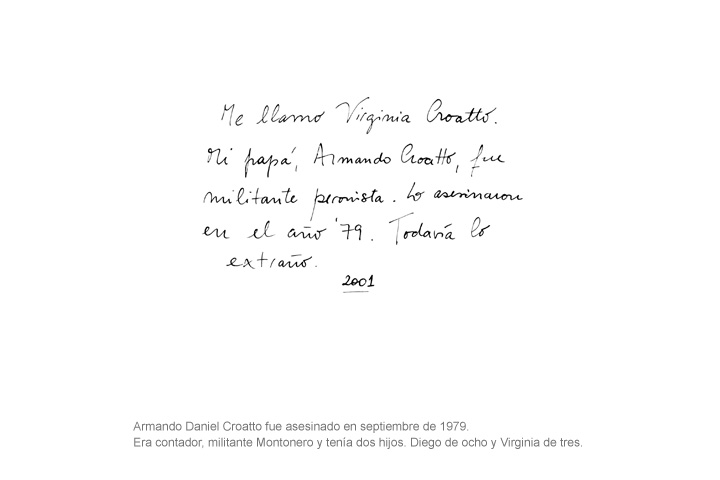 Me llamo Virginia Croatto.
Mi papá, Armando Croatto, fue
militante peronista. Lo asesinaron
en el año '79. Todavía lo
extraño.
2001
Armando Daniel Croatto fue asesinado en septiembre de 1979.
Era contador, militante Montonero y tenía dos hijos. Diego de ocho y Virginia de tres.